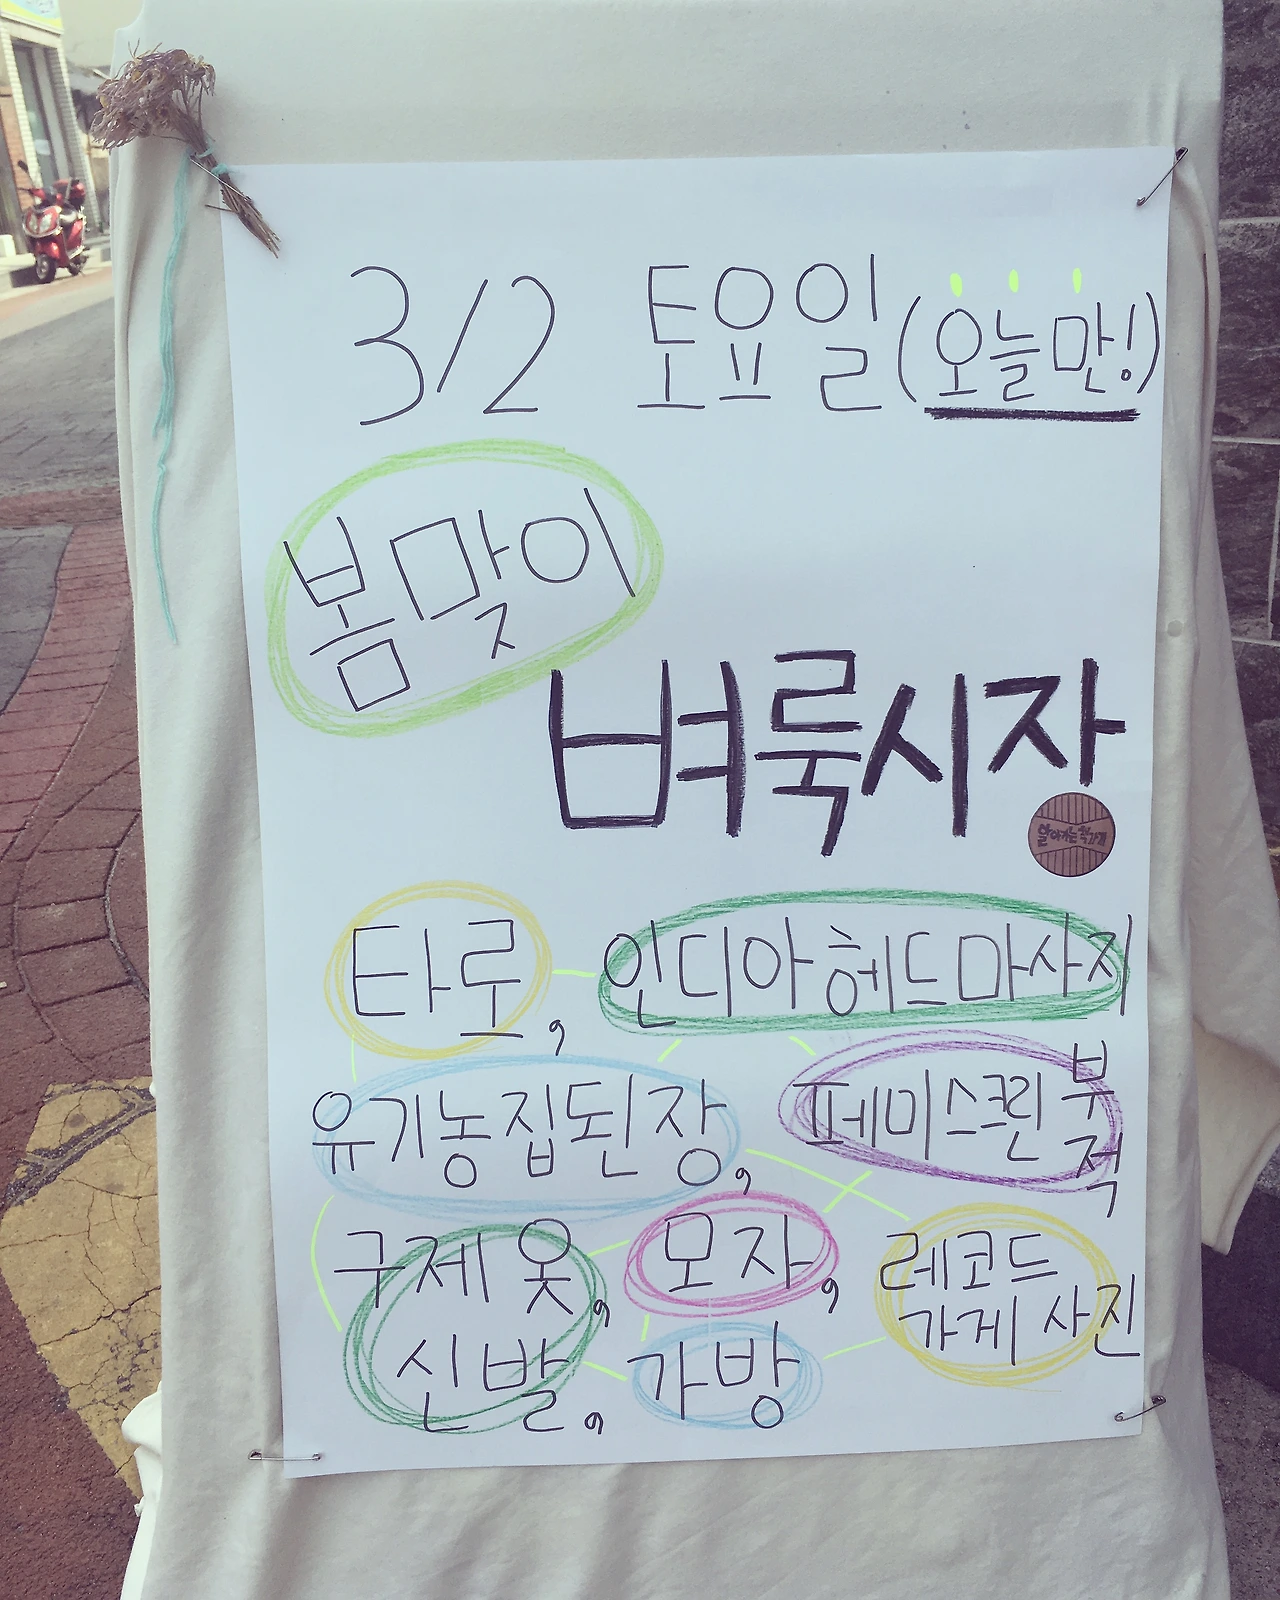 3/2 토요일 (오늘만!)
봄맞이
벼룩시장
살아가는 책가게
타로, 인디아 헤드 마사지
유기농집된장, 페미스크린 부적
구제 옷, 모자, 레코드
가게 사진
신발, 가방